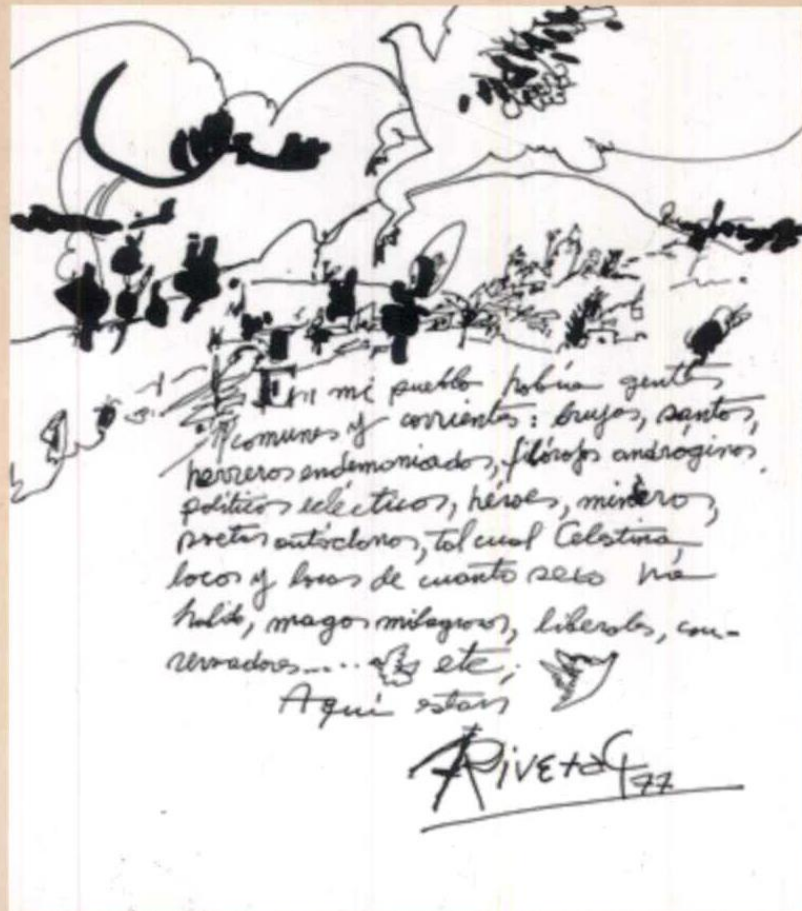 En mi pueblo había gentes
comunes y corrientes: brujas, santos,
herreros endemoniados, filósofos andróginos,
políticos eclécticos, héroes, mineros,
poetas autóctonos, tal cual Celestina,
locos y locas de cuanto sexo ha
habido, magos milagrosos, liberales, con-
servadores..... etc;
Aquí están
ARivera 77